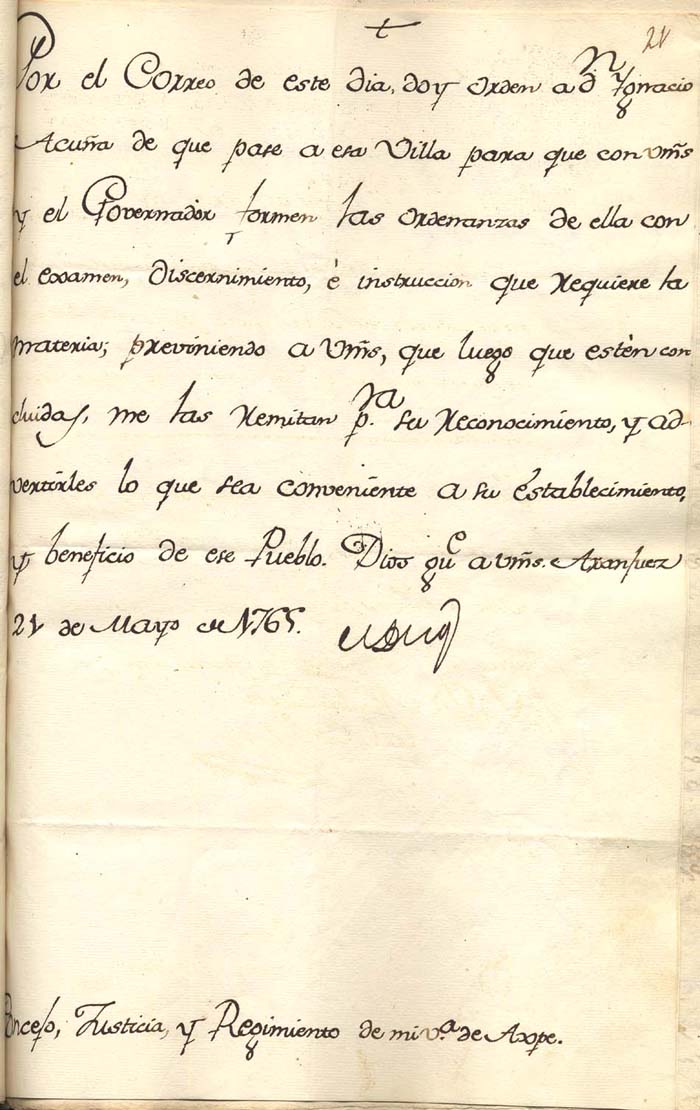 †
21
Por el Correo de este dia, doy orden a Dn Ygnacio
Acuña de que pase a esa Villa para que con vms
y el Governador formen las ordenanzas de ella con
el examen, discernimiento, è instruccion que requiere la
materia; previniendo a Vms, que luego que estèn con
cluidas, me las remitan pra su reconocimiento, y ad-
vertirles lo que sea conveniente a su establecimiento,
y beneficio de ese Pueblo. Dios gue a vms. Aranjuez
21 de Mayo de 1765.
Concejo, Justicia, y Regimiento de mi va. de